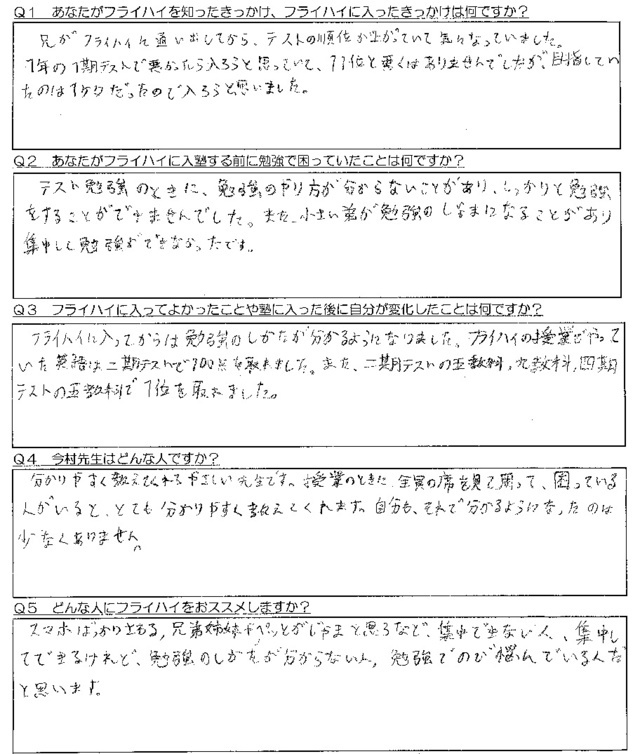 Q1　あなたがフライハイを知ったきっかけ、フライハイに入ったきっかけは何ですか？
兄がフライハイに通い出してから、テストの順位が上がっていて気になっていました。
1年の1期テストで悪かったら入ろうと思っていて、11位と悪くはありませんでしたが、目指してい
たのは1ケタだったので入ろうと思いました。
Q2　あなたがフライハイに入塾する前に勉強で困っていたことは何ですか？
テスト勉強のときに、勉強のやり方が分からないことがあり、しっかりと勉強
をすることができませんでした。また、小さい弟が勉強のじゃまになることがあり
集中して勉強ができなかったです。
Q3　フライハイに入ってよかったことや塾に入った後に自分が変化したことは何ですか？
フライハイに入ってからは勉強のしかたが分かるようになりました。フライハイの授業でやって
いた英語は二期テストで100点を取れました。また、二期テストの五教科,九教科,四期
テストの五教科で1位を取れました。
Q4　今村先生はどんな人ですか？
分かりやすく教えてくれるやさしい先生です。授業のときに、全員の席を見て周って、困っている
人がいると、とても分かりやすく教えてくれます。自分も、それで分かるようになったのは
少なくありません。
Q5　どんな人にフライハイをおススメしますか？
スマホばっかりさわる,兄弟姉妹やペットがじゃまと思うなど、集中できない人、集中し
てできるけれど、勉強のしかたが分からない人,勉強でのび悩んでいる人だ
と思います。